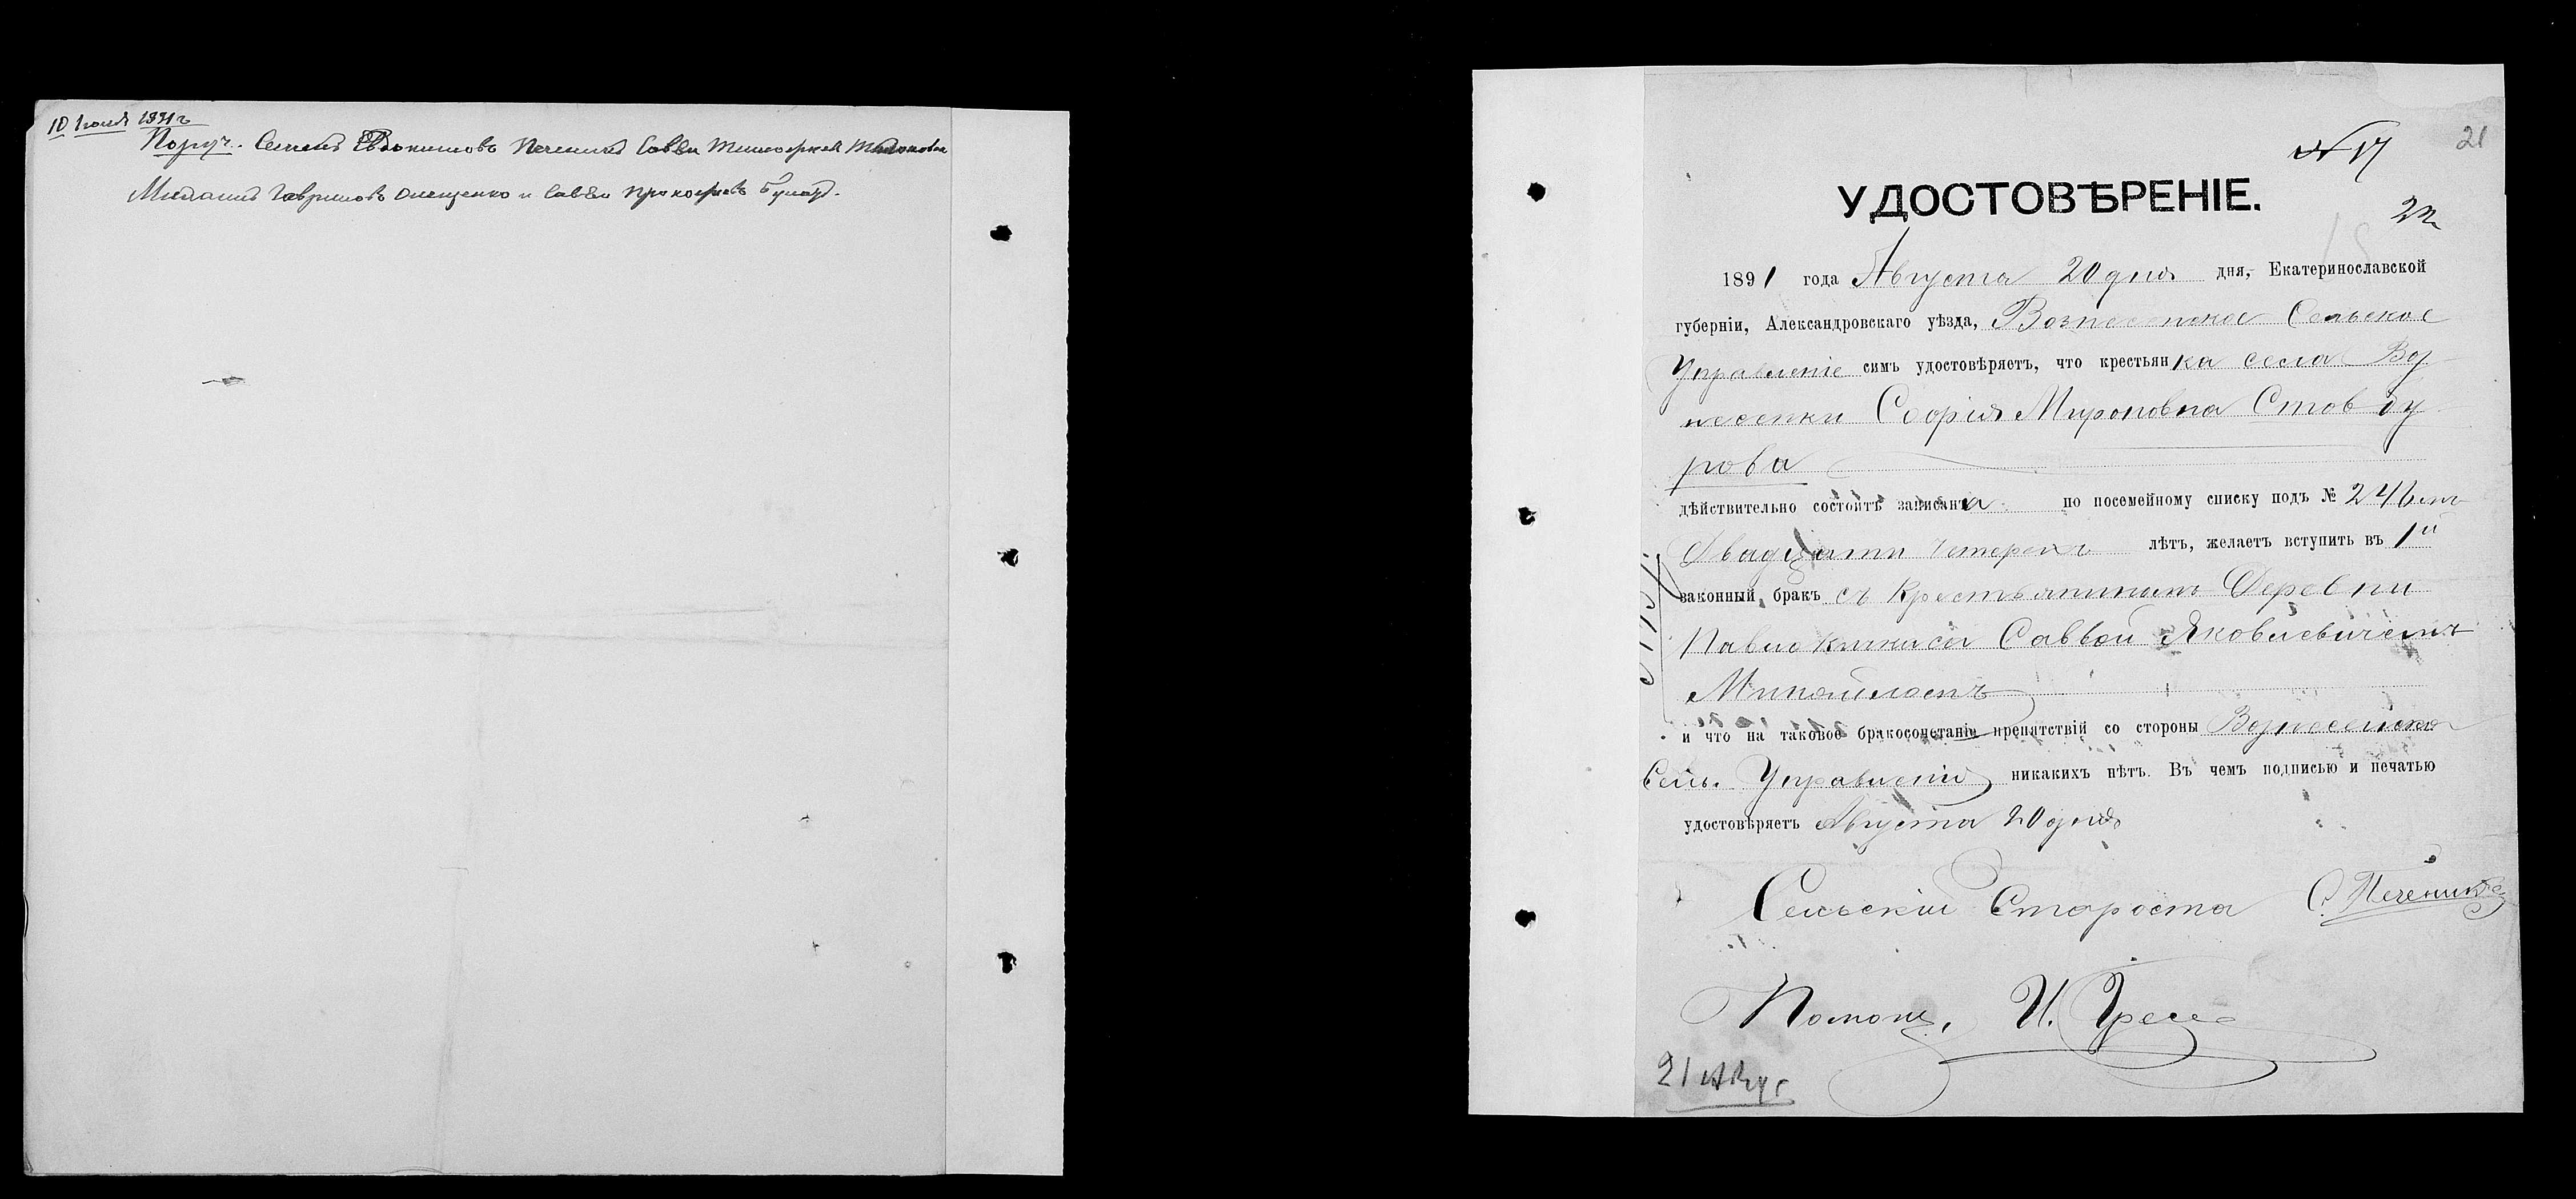 10 Іюля 1891 г
Поруч. Семенъ Евдокимовъ Печеникъ Савва Тимофеев
Гавриловъ Онищенко и Савва Прокофьевъ
№ 17
21
УДОСТОВѢРЕНІЕ.
22
1891 года Августа 20 дня дня, Екатеринославской
губерніи, Александровскаго уѣзда, Вознесенское Сельское
Управленіе симъ удостовѣряетъ, что крестьянка села Воз
несенки Софія Мироновна Стовбу
рова
дѣйствительно состоитъ записана по посемейному списку подъ №
Двадцати четырехъ лѣтъ, желаетъ вступить въ 1й
законный бракъ съ Крестьяниномъ Деревни
Павлокичкаса Саввой Яковлевичемъ
и что на таковое бракосочетаніе препятствій со стороны Вознесенскаго
Сель. Управленія никакихъ нѣтъ. Въ чемъ подписью и печатью
удостовѣряетъ Августа 20 дня
Сельскій Староста С. Печеникъ
Помощ. И.
21 Авгус